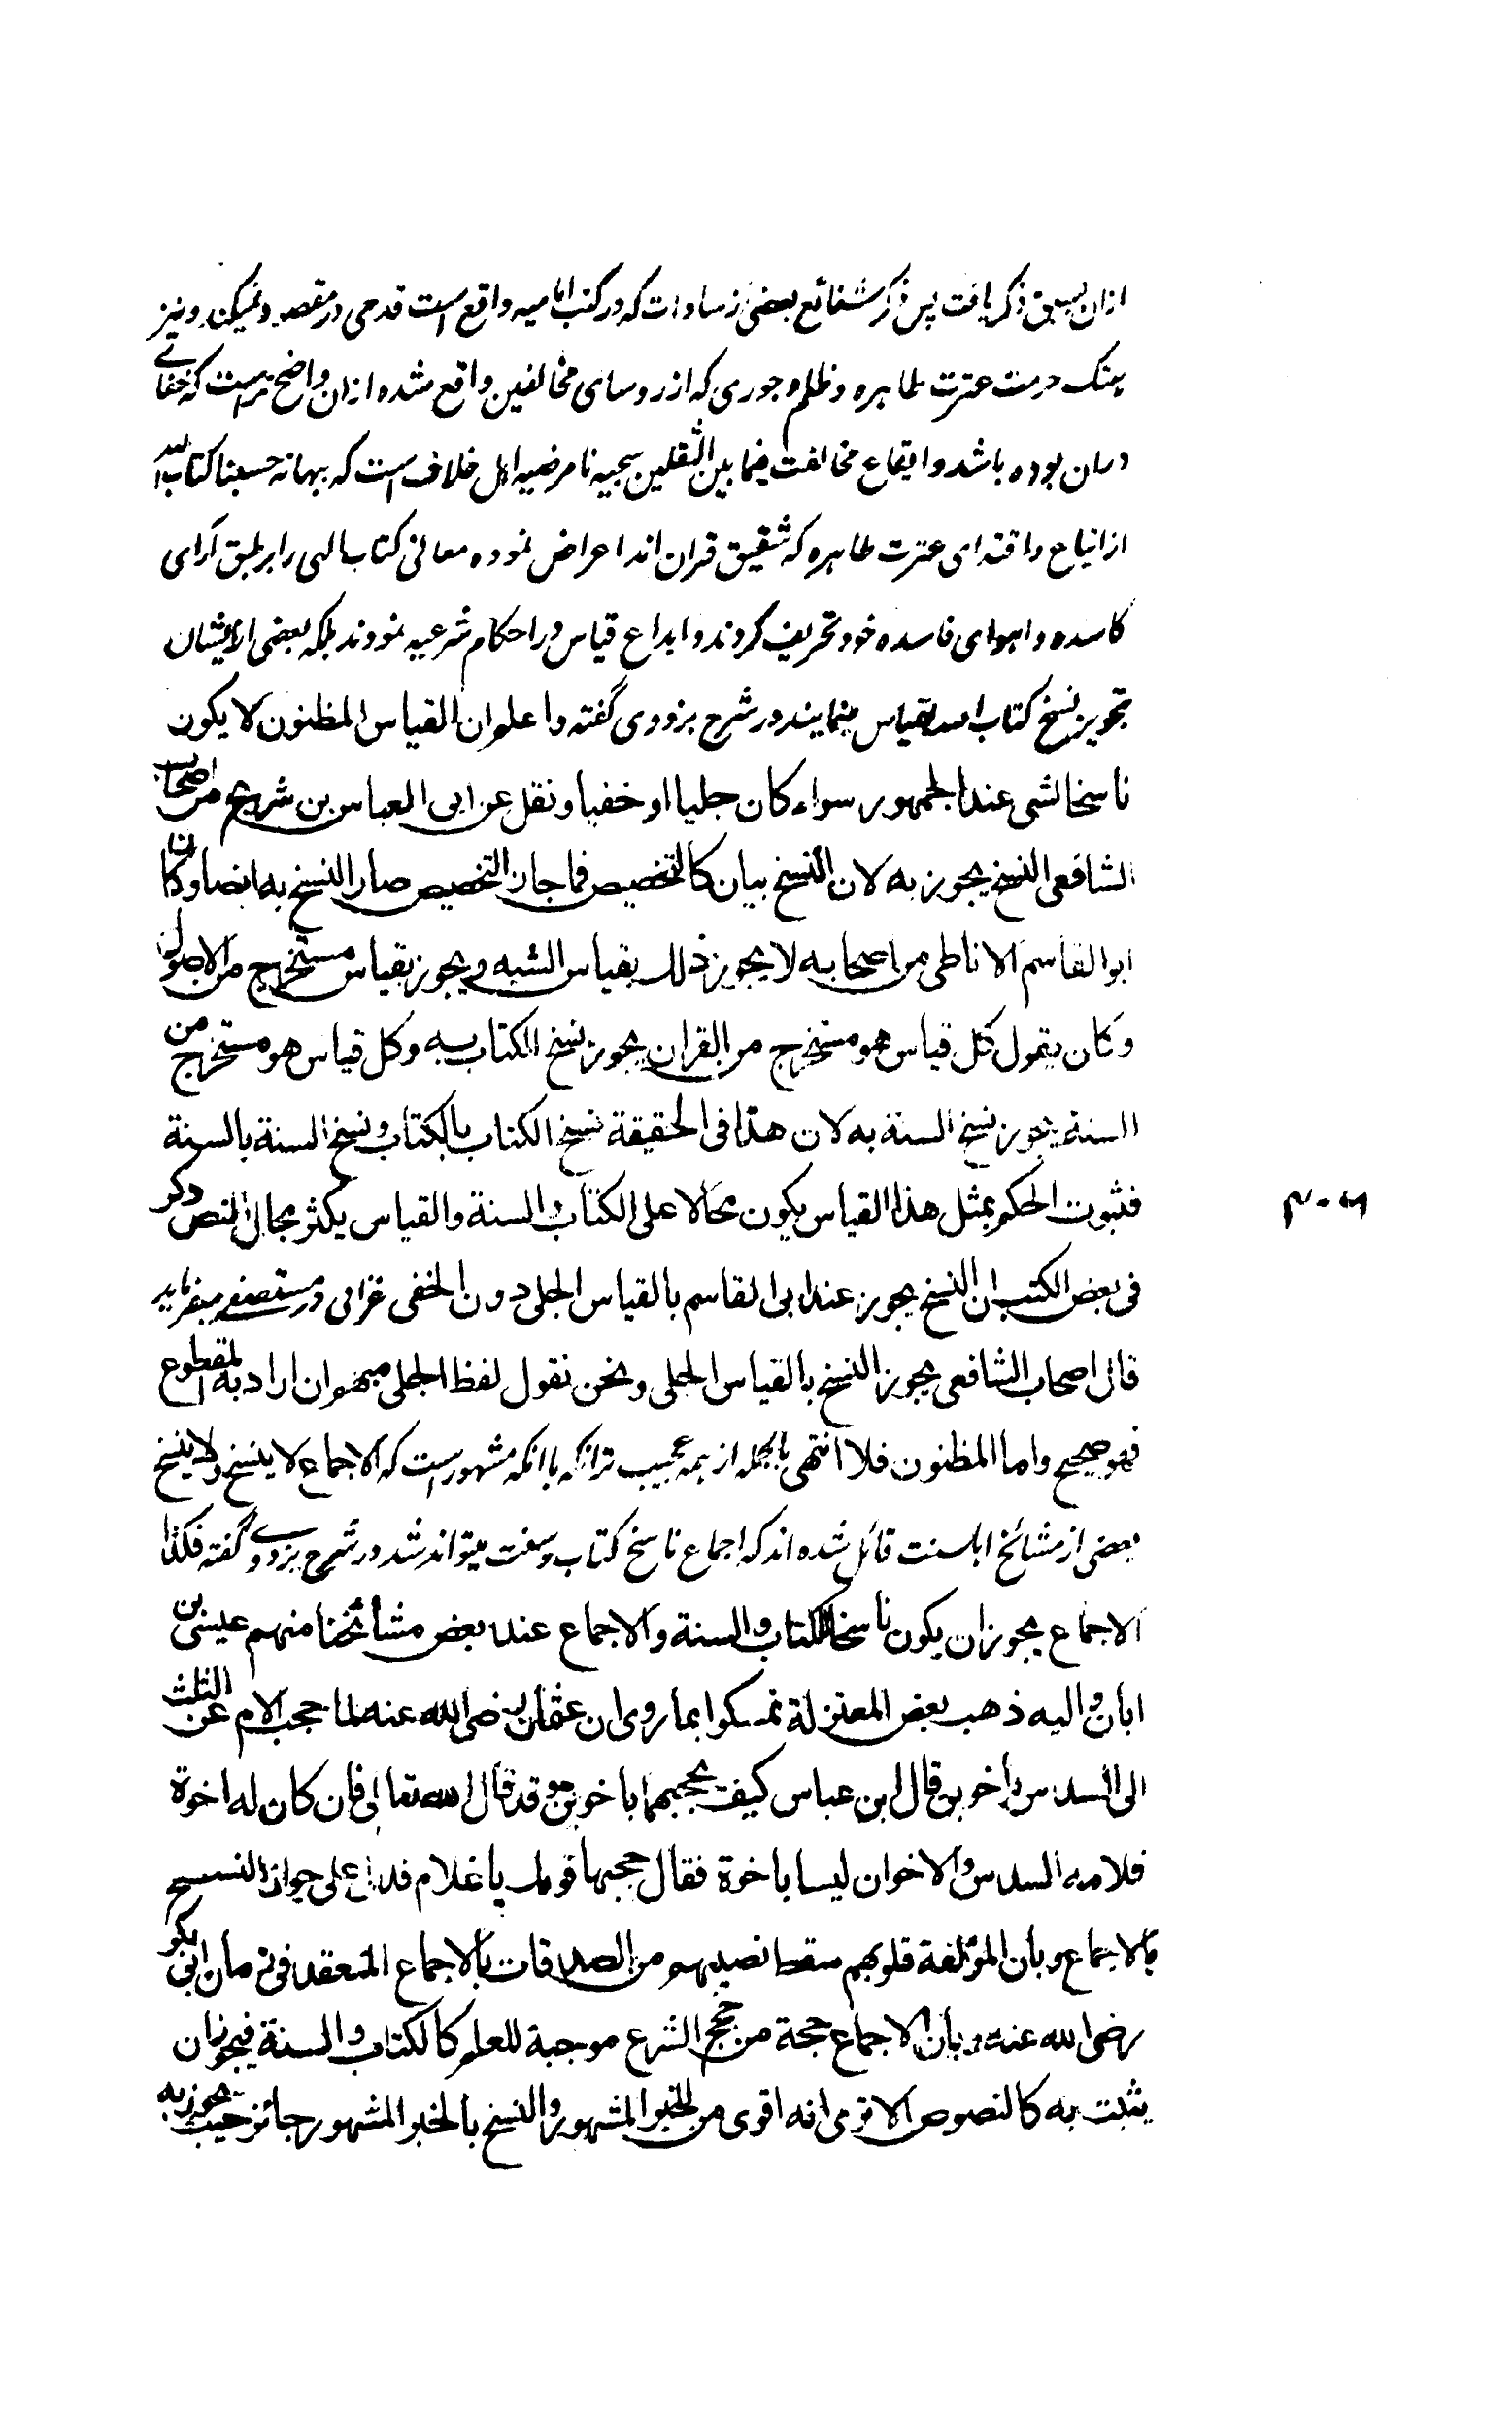 ازان بسبق ذکر یافت پس ذکر شنائع بعضی از سادات که در کتب امامیه واقع است قدحی در مقصود نمیکند و نیز
هتک حرمت عترت طاهره و ظلم و جوری که از روسای مخالفین واقع شده ازان واضح تر است که خفای
دران بوده باشد و ایقاع مخالفت فیما بین الثقلین سجیه نامرضیه اهل خلاف است که ببهانه حسبنا کتاب الله
از اتباع و اقتدای عترت طاهره که شقیق قران اند اعراض نموده معانی کتاب الهی را بر طبق آرای
کاسده و اهوای فاسده خود تحریف کردند و ابداع قیاس در احکام شرعیه نمودند بلکه بعضی از ایشان
تجویز نسخ کتاب الله بقیاس مینمایند در شرح بزدوی گفته واعلم ان القیاس المظنون لا یکون
ناسخا لشی عند الجمهور سواء کان جلیا او خفیا و نقل عن ابی العباس بن شریح من اصحاب
الشافعی النسخ یجوز به لان النسخ بیان کالتخصیص فما جاز التخصیص صار النسخ به ایضا و کان
ابو القاسم الانماطی من اصحابه لا یجوز ذلک بقیاس الشبه و یجوز بقیاس مستخرج من الاصول
و کان یقول کل قیاس هو مستخرج من القران یجوز نسخ الکتاب به و کل قیاس هو مستخرج من
السنة یجوز نسخ السنة به لان هذا فی الحقیقة نسخ الکتاب بالکتاب و نسخ السنة بالسنة
فثبوت الحکم بمثل هذا القیاس یکون محالا علی الکتاب و السنة والقیاس یکثر مجال النص ذکر
فی بعض الکتب ان النسخ یجوز عند ابی القاسم بالقیاس الجلی دون الخفی غزالی در مستصفی میفرماید
قال اصحاب الشافعی یجوز النسخ بالقیاس الجلی و نحن نقول لفظ الجلی مبهم وان اراد به المقطوع
فهو صحیح و اما المظنون فلا انتهی بالجمله از همه عجیب تر انکه با انکه مشهور است که الاجماع لا ینسخ ولا ینسخ
بعضی از مشائخ اهلسنت قائل شده اند که اجماع ناسخ کتاب و سنت میتواند شد در شرح بزدوی گفته فکذا
الاجماع یجوز ان یکون ناسخا للکتاب و السنة و الاجماع عند بعض مشائخنا منهم عیسی بن
ابان و الیه ذهب بعض المعتزلة تمسکوا بما روی ان عثمان رضی الله عنه لما حجب الام عن الثلث
الی السدس باخوین قال ابن عباس کیف تحجبهما باخوین و قد قال الله تعالی فان کان له اخوة
فلامه السدس و الاخوان لیسا باخوة فقال حجبها قومک یا غلام فدل علی جواز النسخ
بالاجماع و بان المؤلفة قلوبهم سقط نصیبهم من الصدقات بالاجماع المنعقد فی زمان ابی بکر
رضی الله عنه و بان الاجماع حجة من حجج الشرع موجبة للعلم کالکتاب و السنة فیجوز ان
یثبت به کالنصوص الا تری انه اقوی من الخبر المشهور و النسخ بالخبر المشهور جائز حیث یجوز به